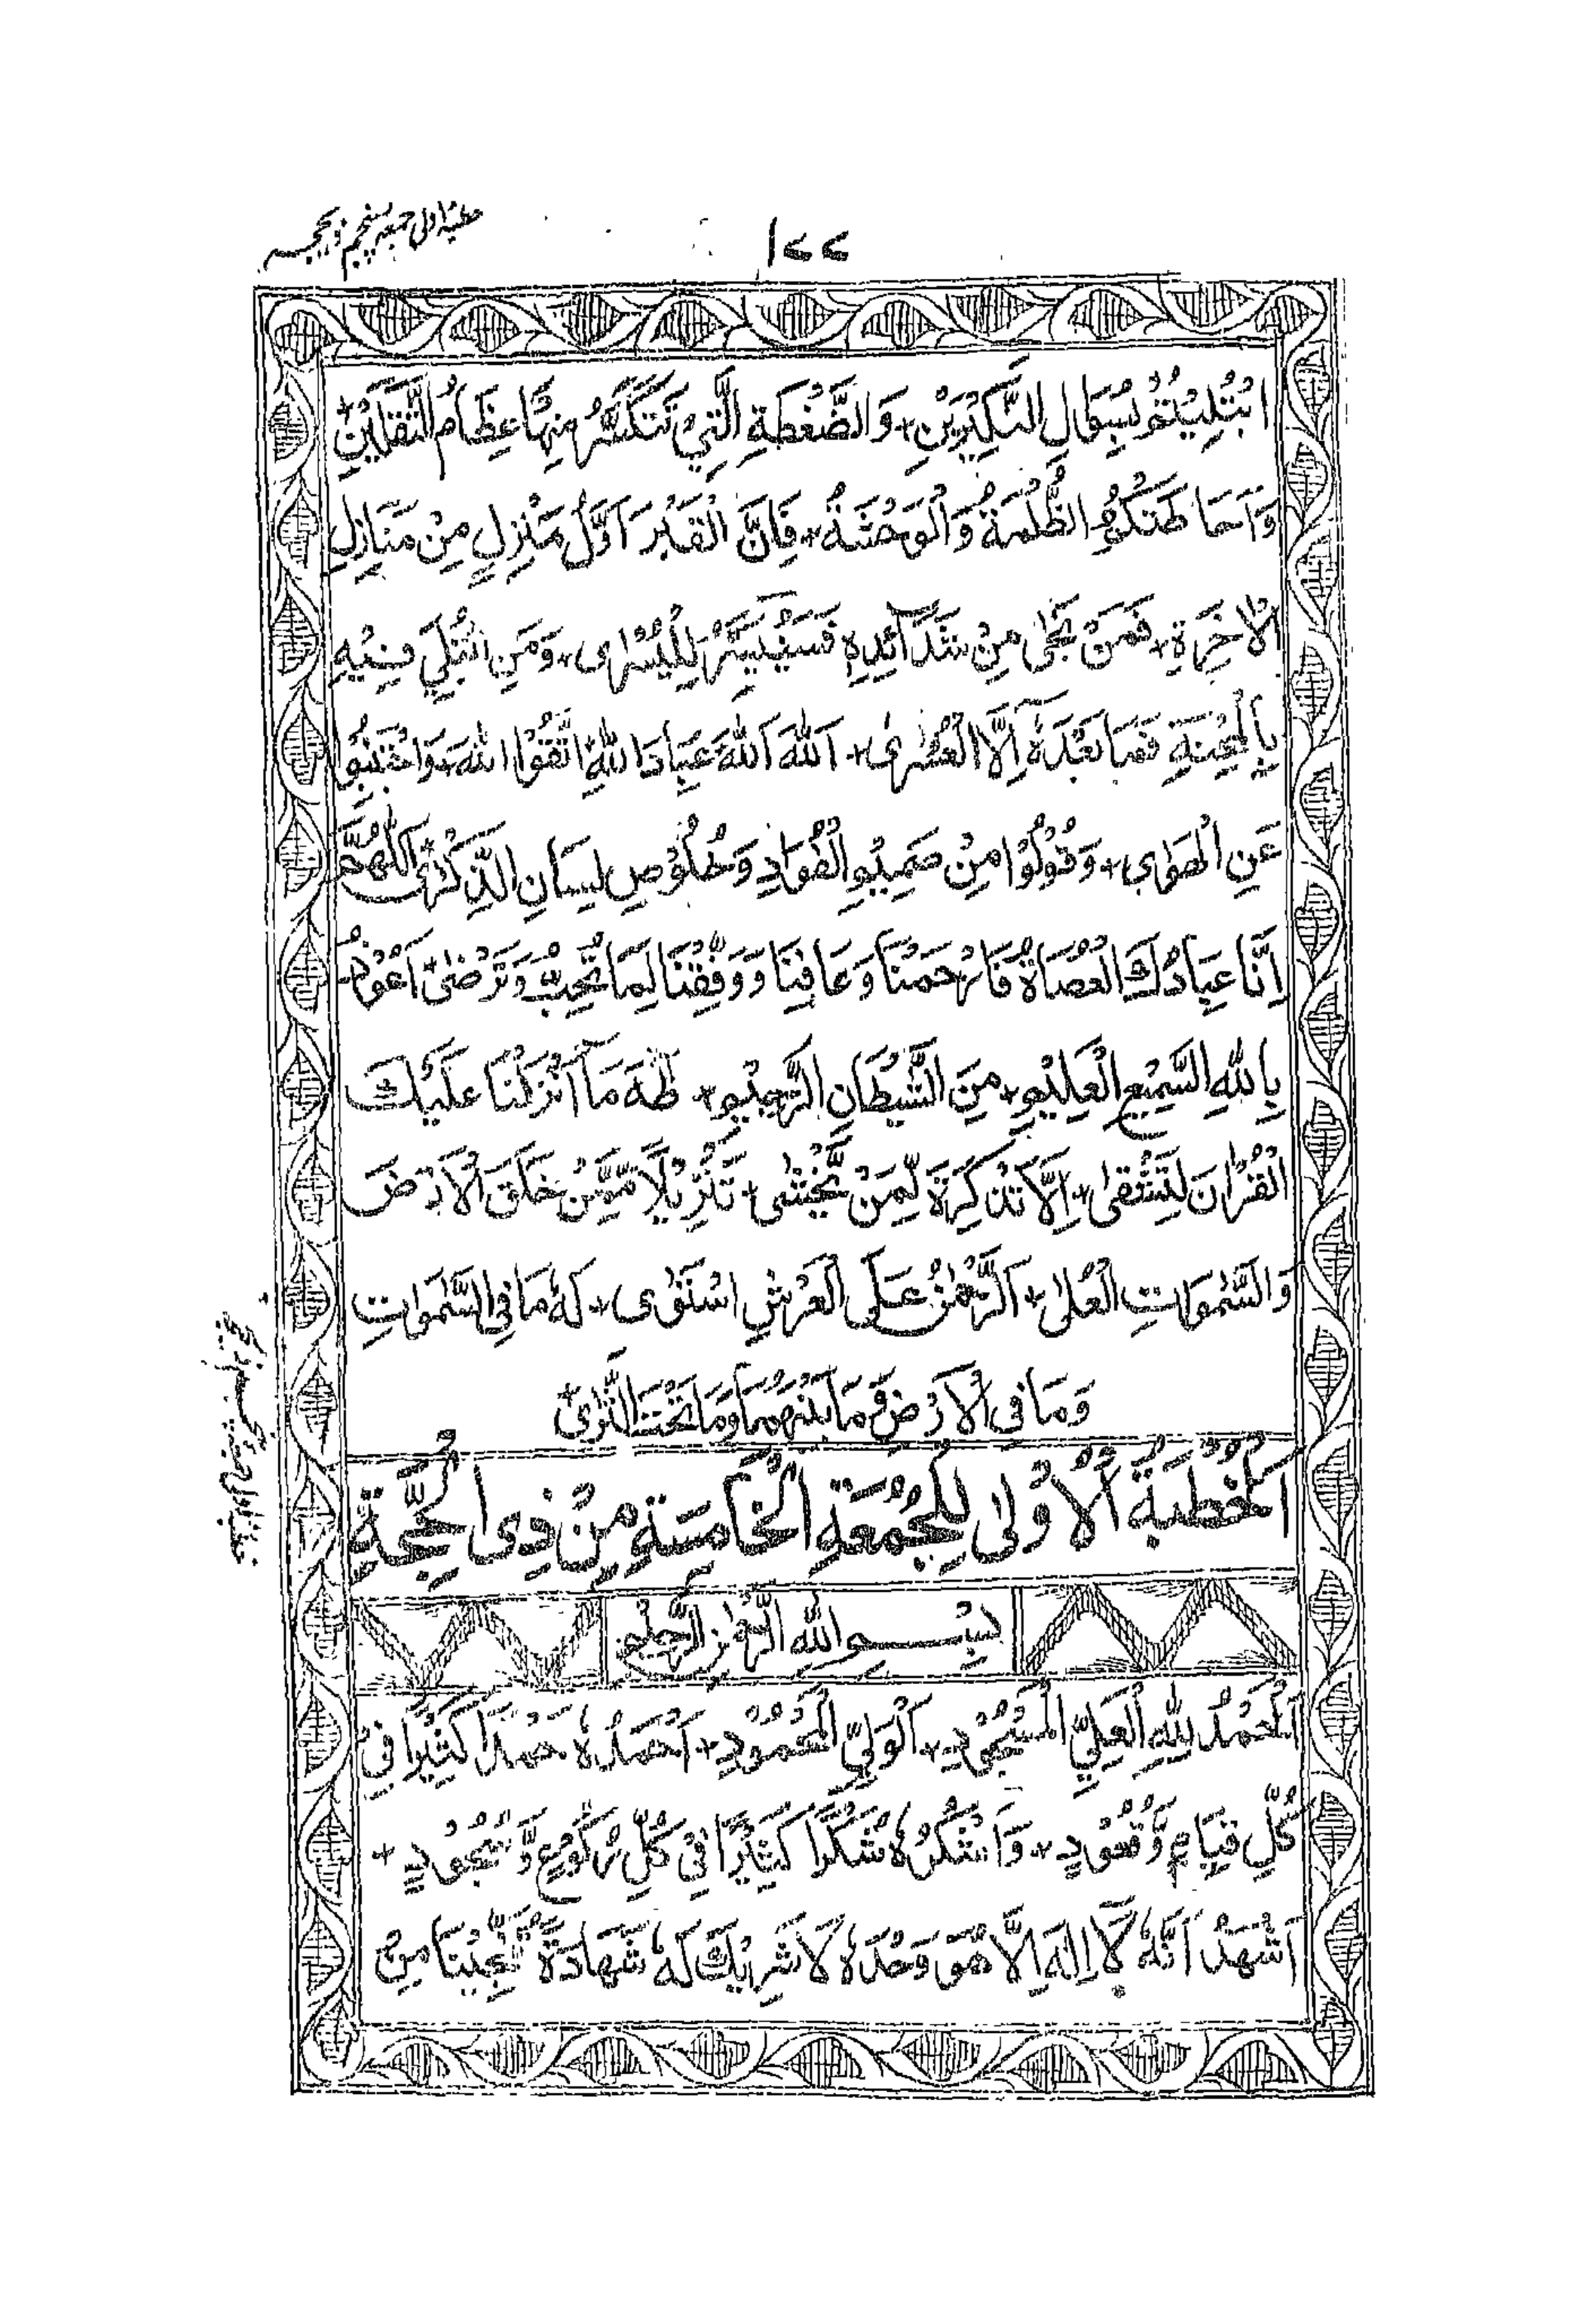 ۱۷۷
خطبہ اولی جمعہ پنجم ذیحجہ
ابْتُلِيْتُمْ بِسُؤَالِ النَّكِيْرَيْنِ + وَالضَّغْطَةِ الَّتِيْ تَتَكَسَّرُ مِنْهَا عِظَامُ الثَّقَلَيْنِ +
وَاَحَاطَتْكُمُ الظُّلْمَةُ وَالْوَحْشَةُ + فَاِنَّ الْقَبْرَ اَوَّلُ مَنْزِلٍ مِنْ مَنَازِلِ
الْاٰخِرَةِ + فَمَنْ نَجٰى مِنْ شَدَآئِدِهٖ فَسَيُيَسَّرُ لِلْيُسْرٰى + وَمَنِ ابْتُلِيَ فِيْهِ
بِالْمِحْنَةِ فَمَا بَعْدَهٗ اِلَّا الْعُسْرٰى + اَللهَ اَللهَ عِبَادَ اللهِ اتَّقُوا اللهَ وَاجْتَنِبُوْا
عَنِ الْهَوٰى + وَقُوْلُوْا مِنْ صَمِيْمِ الْفُؤَادِ وَخُلُوْصِ لِسَانِ الذِّكْرٰى + اَللّٰهُمَّ
اِنَّا عِبَادُكَ الْعُصَاةُ فَارْحَمْنَا وَعَافِنَا وَوَفِّقْنَا لِمَا تُحِبُّ وَتَرْضٰى + اَعُوْذُ
بِاللهِ السَّمِيْعِ الْعَلِيْمِ + مِنَ الشَّيْطَانِ الرَّجِيْمِ + طٰهٰ مَا اَنْزَلْنَا عَلَيْكَ
الْقُرْاٰنَ لِتَشْقٰى + اِلَّا تَذْكِرَةً لِّمَنْ يَّخْشٰى + تَنْزِيْلًا مِّمَّنْ خَلَقَ الْاَرْضَ
وَالسَّمٰوَاتِ الْعُلٰى + اَلرَّحْمٰنُ عَلَى الْعَرْشِ اسْتَوٰى + لَهٗ مَا فِى السَّمٰوَاتِ
وَمَا فِى الْاَرْضِ وَمَا بَيْنَهُمَا وَمَا تَحْتَ الثَّرٰى +
اَلْخُطْبَةُ الْاُوْلٰى لِلْجُمُعَةِ الْخَامِسَةِ مِنْ ذِى الْحِجَّةِ
بِسْمِ اللهِ الرَّحْمٰنِ الرَّحِيْمِ
اَلْحَمْدُ لِلّٰهِ الْعَلِيِّ الْمَسْجُوْدِ + اَلْوَلِيِّ الْمَحْمُوْدِ + اَحْمَدُهٗ حَمْدًا كَثِيْرًا فِيْ
كُلِّ قِيَامٍ وَّقُعُوْدٍ + وَاَشْكُرُهٗ شُكْرًا كَثِيْرًا فِيْ كُلِّ رُكُوْعٍ وَّسُجُوْدٍ +
اَشْهَدُ اَنَّهٗ لَا اِلٰهَ اِلَّا هُوَ وَحْدَهٗ لَا شَرِيْكَ لَهٗ شَهَادَةً تُنْجِيْنَا مِنْ